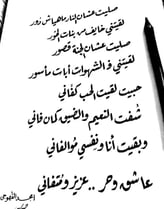 صليت عشان النار ماهياش زور
لقيتني خايف من بنات الحور
صليت عشان الجنة قصور
لقيتني في الشهوات أبات مأسور
حبيت لقيت الحب كفاني
شفت النعيم والضيق كمان فاني
وبقيت أنا ونفسي موالفاني
عاشق وحر .. عزيز ومتفاني